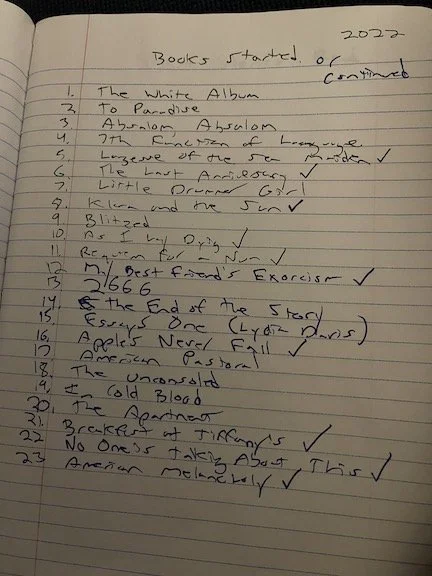 2022
Books started or
continued
1. The White Album
2. To Paradise
3 Absalom, Absalom
4. 7th Function of Language
5. Largesse of the Sea Maiden ✓
6. The Last Anniversary ✓
7. Little Drummer Girl
8. Klara and the Sun ✓
9. Blitzed
10. As I Lay Dying ✓
11. Requiem for a Nun ✓
12 My Best Friend's Exorcism ✓
13 2666
14. The End of the Story
15. Essays One (Lydia Davis)
16. Apples Never Fall ✓
17 American Pastoral
18. The Unconsoled
19. In Cold Blood
20. The Apartment
21. Breakfast at Tiffany's ✓
22 No One is Talking About This ✓
23 American Melancholy ✓